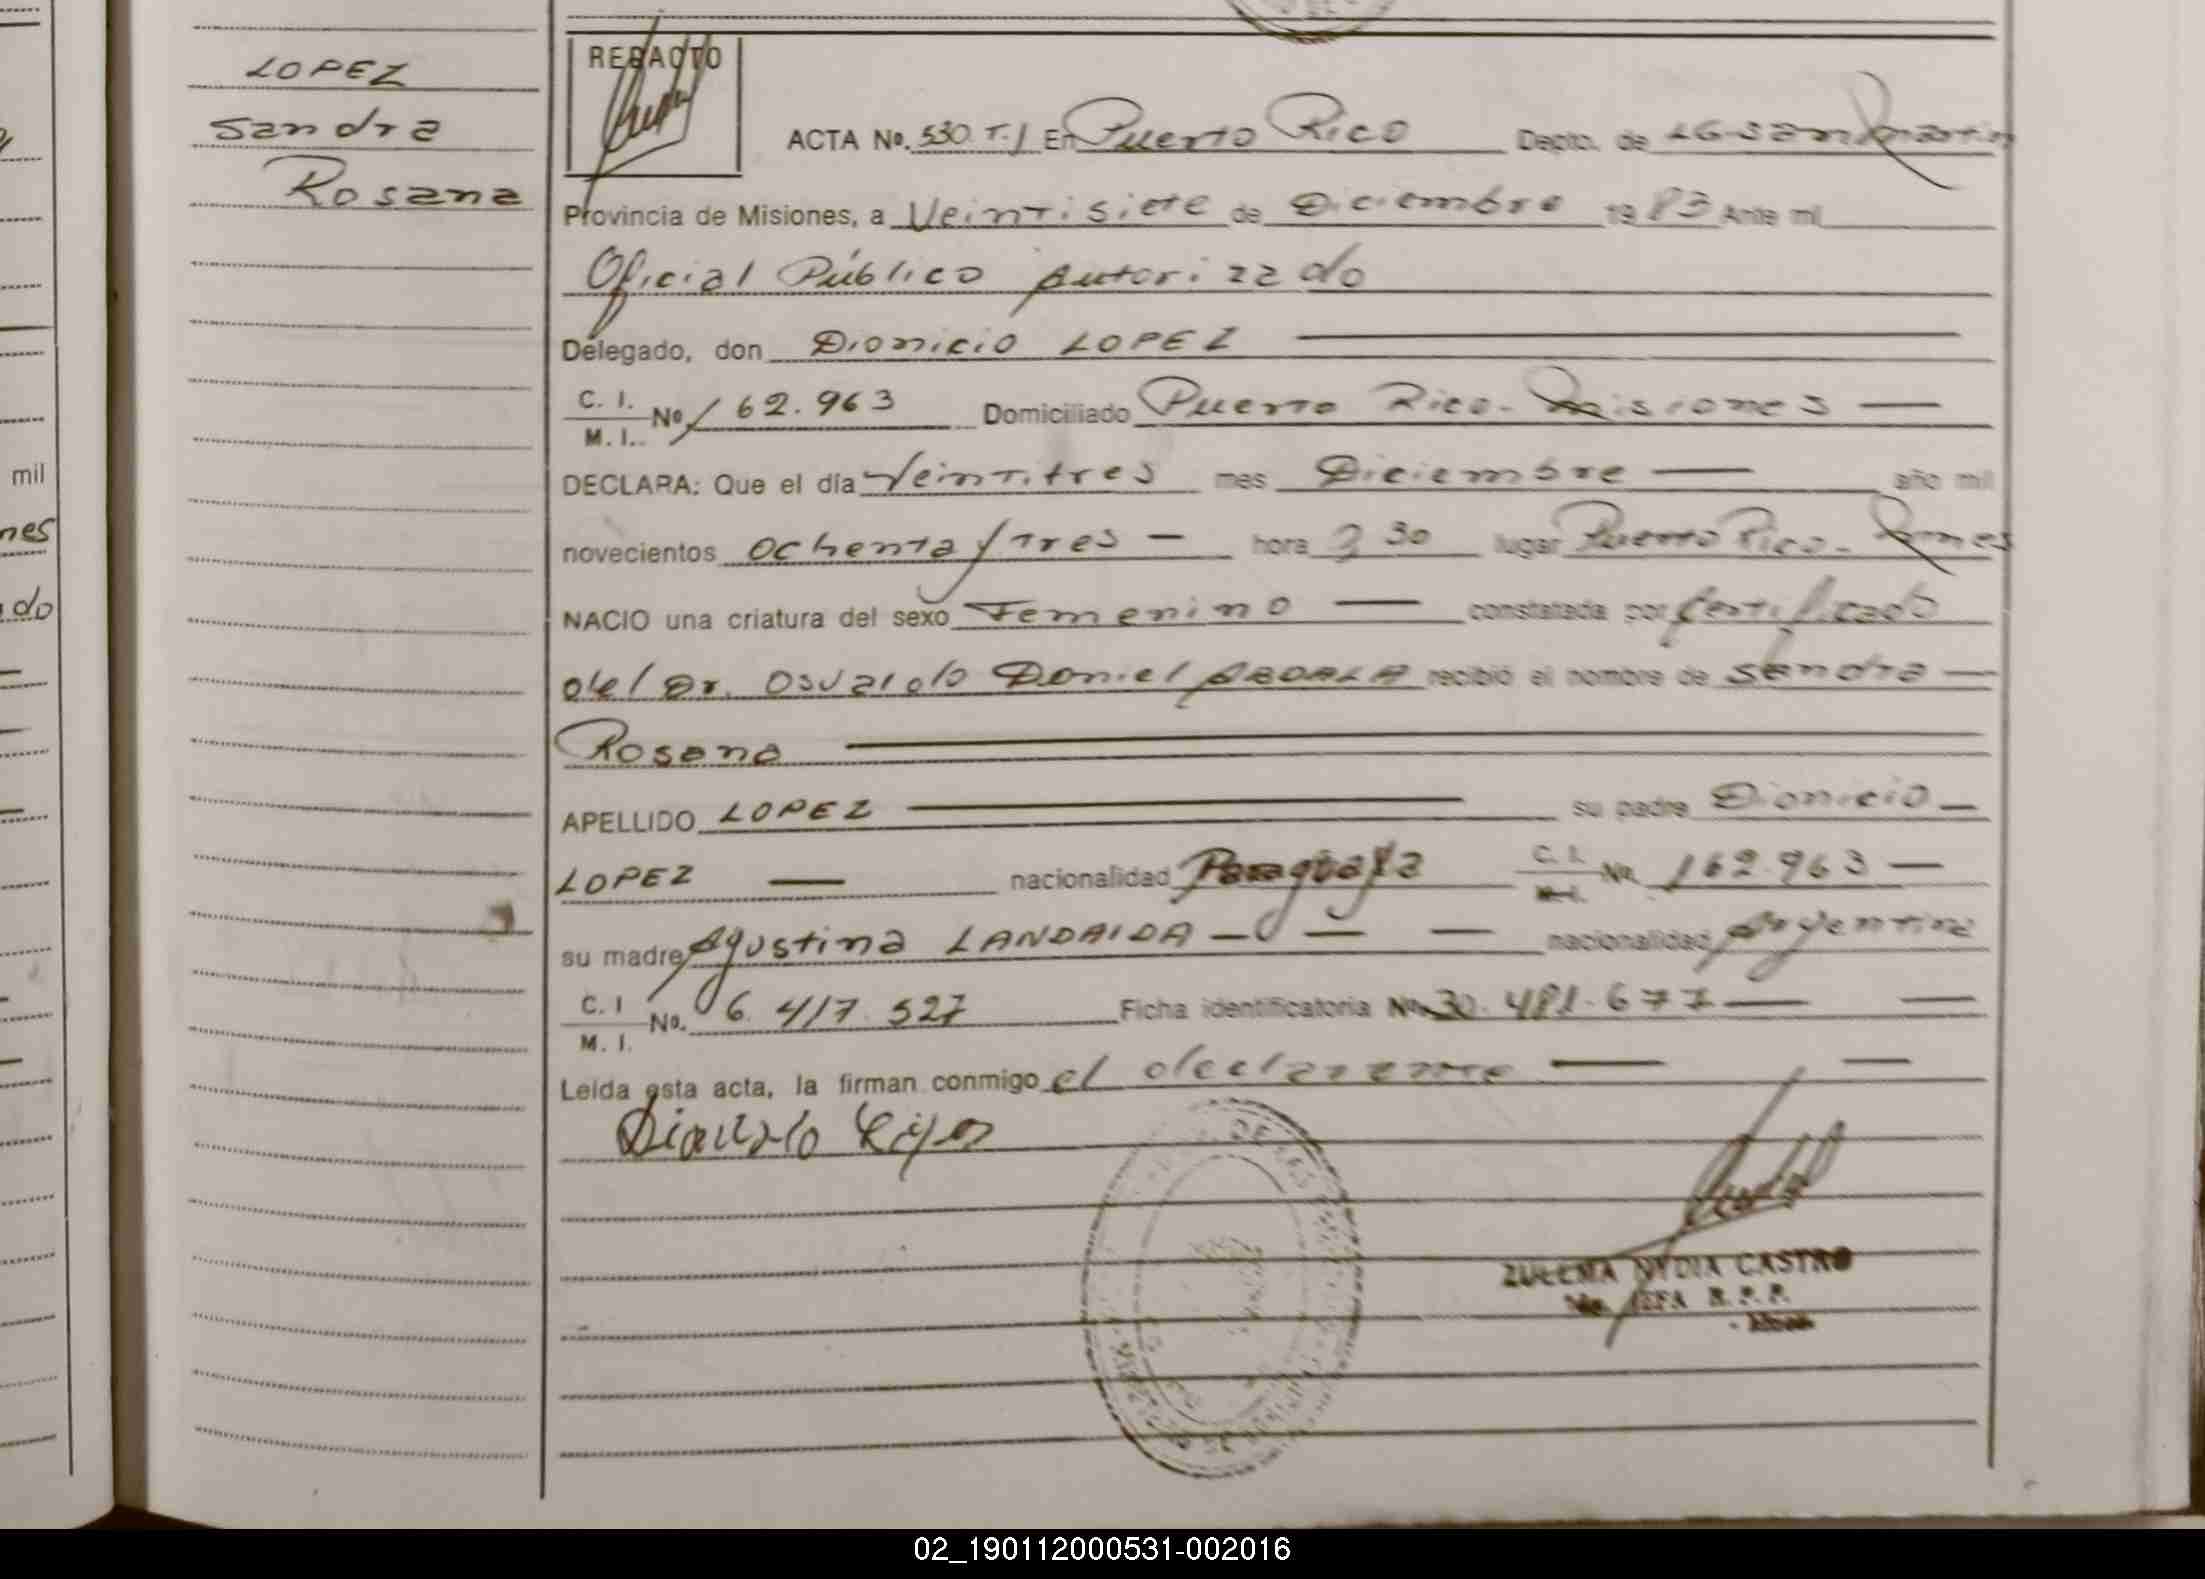 LOPEZ
Sandra
Rosana
REDACTO
ACTA No. 530 T.I En Puerto Rico Depto. de LG-San Martin
Provincia de Misiones, a Veintisiete de Diciembre 1983 Ante mi
Oficial Público Autorizado
Delegado, don Dionicio LOPEZ
C. I.
M. I. No. 162.963 Domiciliado Puerto Rico-Misiones
DECLARA: Que el día Veintitres mes Diciembre año mil
novecientos ochenta y tres hora 30 lugar Puerto Rico-
NACIO una criatura del sexo Femenino constatada por Certificado
del Dr. Osvaldo Daniel ABDALA recibió el nombre de Sandra
Rosana
APELLIDO LOPEZ su padre Dionicio
LOPEZ nacionalidad Paraguaya C. I. No. 162.963
su madre Agustina LANDAIDA nacionalidad Argentina
C. I
M. I. No. 6.417.527 Ficha identificatoria No. 30.481.677
Leída esta acta, la firman conmigo el declarante
ZULEMA NYDIA CASTRO
JEFA R. P. P.
mil
nes
do
02_190112000531-002016